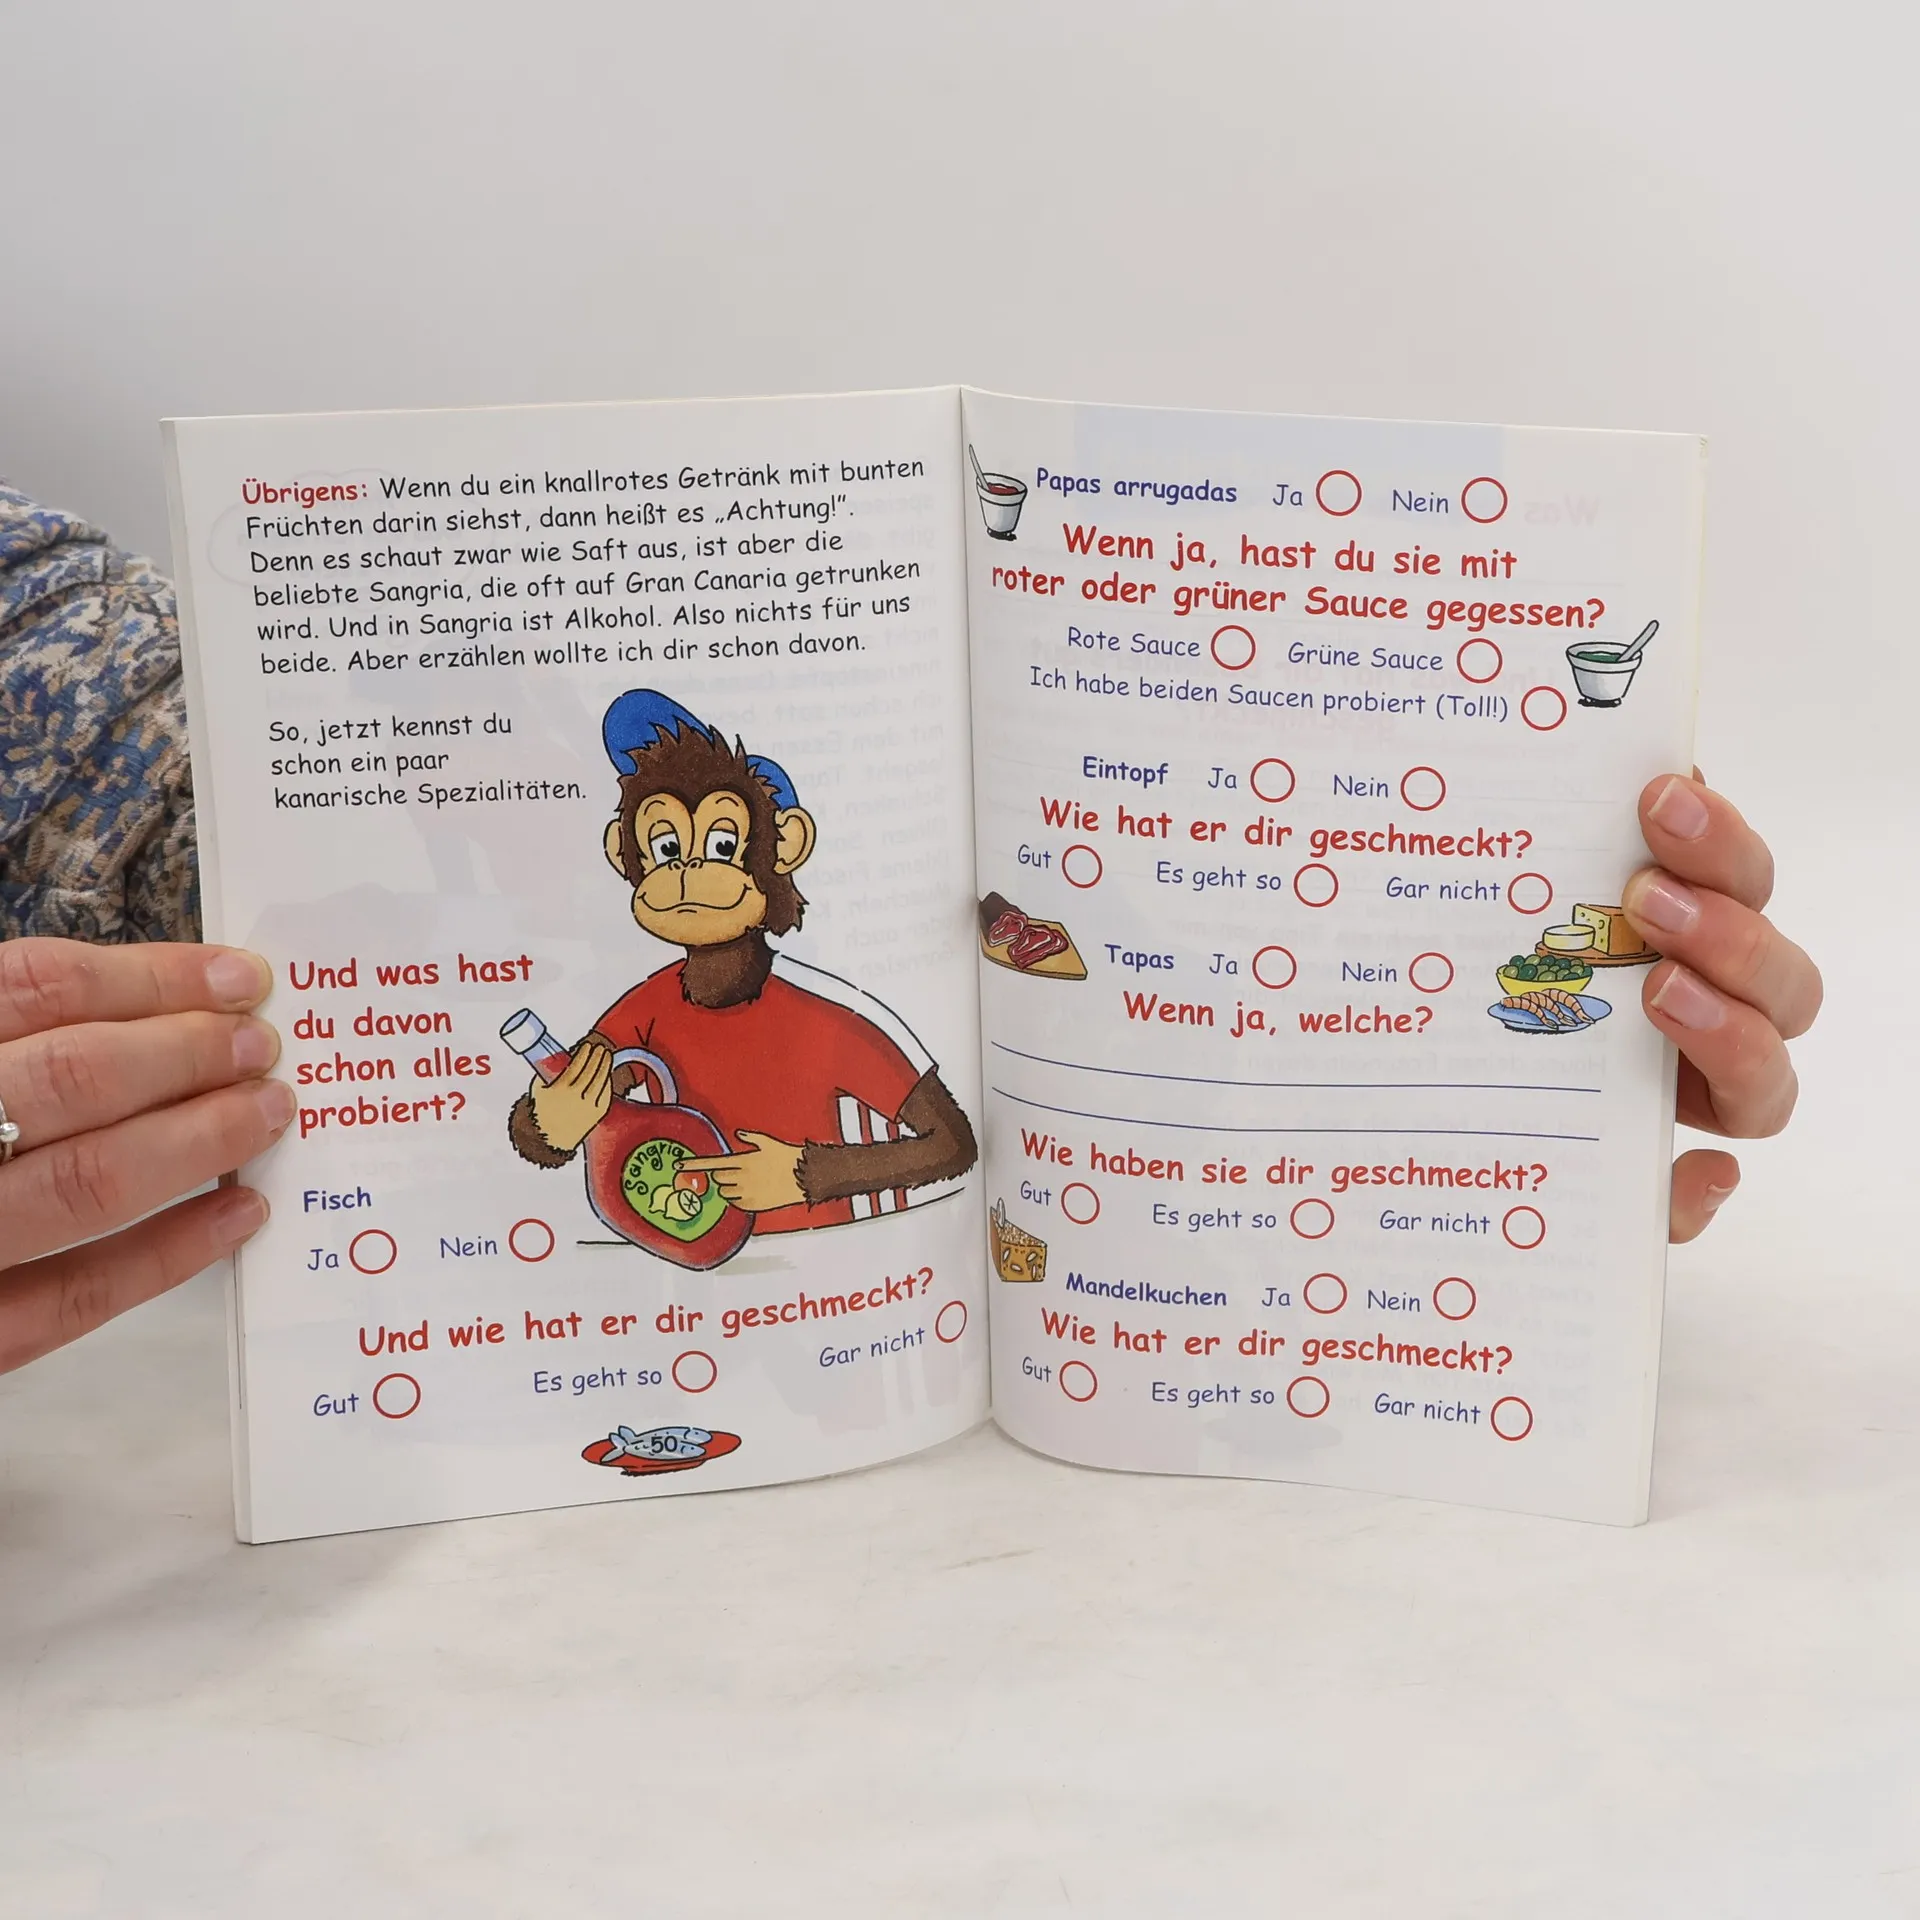 Übrigens: Wenn du ein knallrotes Getränk mit bunten
Früchten darin siehst, dann heißt es „Achtung!“.
Denn es schaut zwar wie Saft aus, ist aber die
beliebte Sangria, die oft auf Gran Canaria getrunken
wird. Und in Sangria ist Alkohol. Also nichts für uns
beide. Aber erzählen wollte ich dir schon davon.
So, jetzt kennst du
schon ein paar
kanarische Spezialitäten.
Und was hast
du davon
schon alles
probiert?
Sangria
Fisch
Ja Nein
Und wie hat er dir geschmeckt?
Gut Es geht so Gar nicht
50
Papas arrugadas Ja Nein
Wenn ja, hast du sie mit
roter oder grüner Sauce gegessen?
Rote Sauce Grüne Sauce
Ich habe beiden Saucen probiert (Toll!)
Eintopf Ja Nein
Wie hat er dir geschmeckt?
Gut Es geht so Gar nicht
Tapas Ja Nein
Wenn ja, welche?
Wie haben sie dir geschmeckt?
Gut Es geht so Gar nicht
Mandelkuchen Ja Nein
Wie hat er dir geschmeckt?
Gut Es geht so Gar nicht